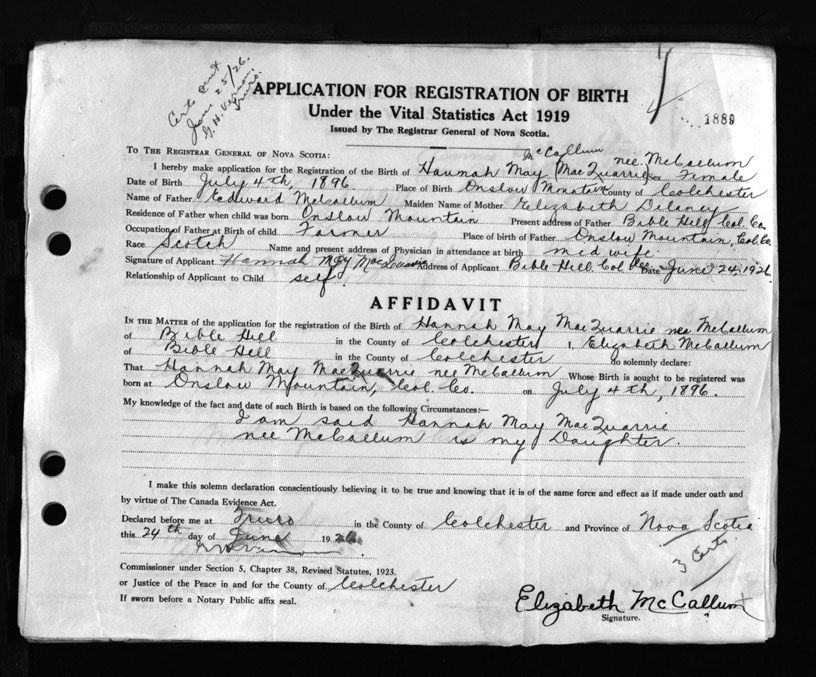 Certs sent
June 25/26.
G. H. Vernon,
Truro.
APPLICATION FOR REGISTRATION OF BIRTH
Under the Vital Statistics Act 1919
Issued by The Registrar General of Nova Scotia.
1889
McCallum
TO THE REGISTRAR GENERAL OF NOVA SCOTIA:
I hereby make application for the Registration of the Birth of Hannah May (MacQuarrie nee McCallum Female
Date of Birth July 4th, 1896 Place of Birth Onslow Mountain County of Colchester
Name of Father Edward McCallum Maiden Name of Mother Elizabeth Delaney
Residence of Father when child was born Onslow Mountain Present address of Father Bible Hill, Col. Co.
Occupation of Father at Birth of child Farmer Place of birth of Father Onslow Mountain, Col. Co.
Race Scotch Name and present address of Physician in attendance at birth mid wife
Signature of Applicant Hannah May MacQuarrie Address of Applicant Bible Hill Col. Co. Date June 24, 1926
Relationship of Applicant to Child self.
AFFIDAVIT
IN THE MATTER of the application for the registration of the Birth of Hannah May MacQuarrie nee McCallum
of Bible Hill in the County of Colchester I, Elizabeth McCallum
of Bible Hill in the County of Colchester do solemnly declare:
That Hannah May MacQuarrie nee McCallum Whose Birth is sought to be registered was
born at Onslow Mountain, Col. Co. on July 4th, 1896.
My knowledge of the fact and date of such Birth is based on the following Circumstances:—
I am said Hannah May MacQuarrie
nee McCallum is my Daughter.
I make this solemn declaration conscientiously believing it to be true and knowing that it is of the same force and effect as if made under oath and
by virtue of The Canada Evidence Act.
Declared before me at Truro in the County of Colchester and Province of Nova Scotia
this 24th day of June 1926.
3 Certs.
Commissioner under Section 5, Chapter 38, Revised Statutes, 1923.
or Justice of the Peace in and for the County of Colchester
If sworn before a Notary Public affix seal.
Elizabeth McCallum
Signature.